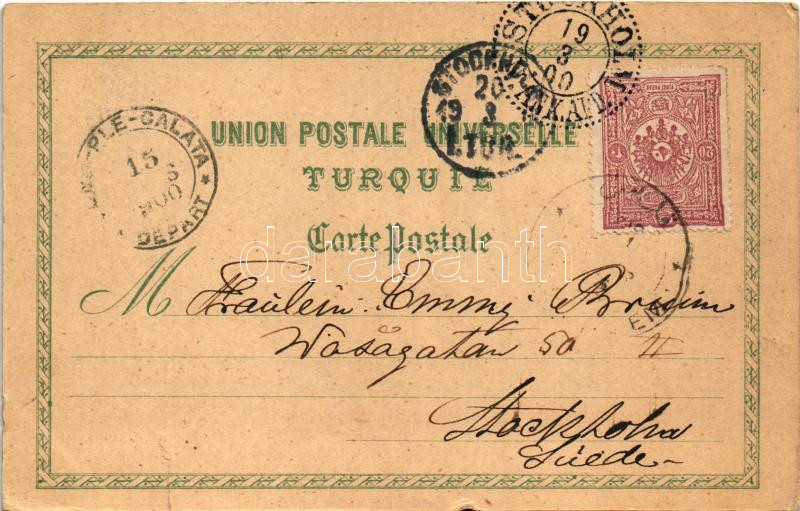 STOCKHOLM
19
3
00
ANK.ALL.
STOCKHOLM
20
19 3
1.TUR.
UNION POSTALE UNIVERSELLE
TURQUIE
Carte Postale
PLE-GALATA
15
3
900
DEPART
20
M Fräulein Emmy Bruun
Wasagatan 50 II
Stockholm
Suède
darabanth